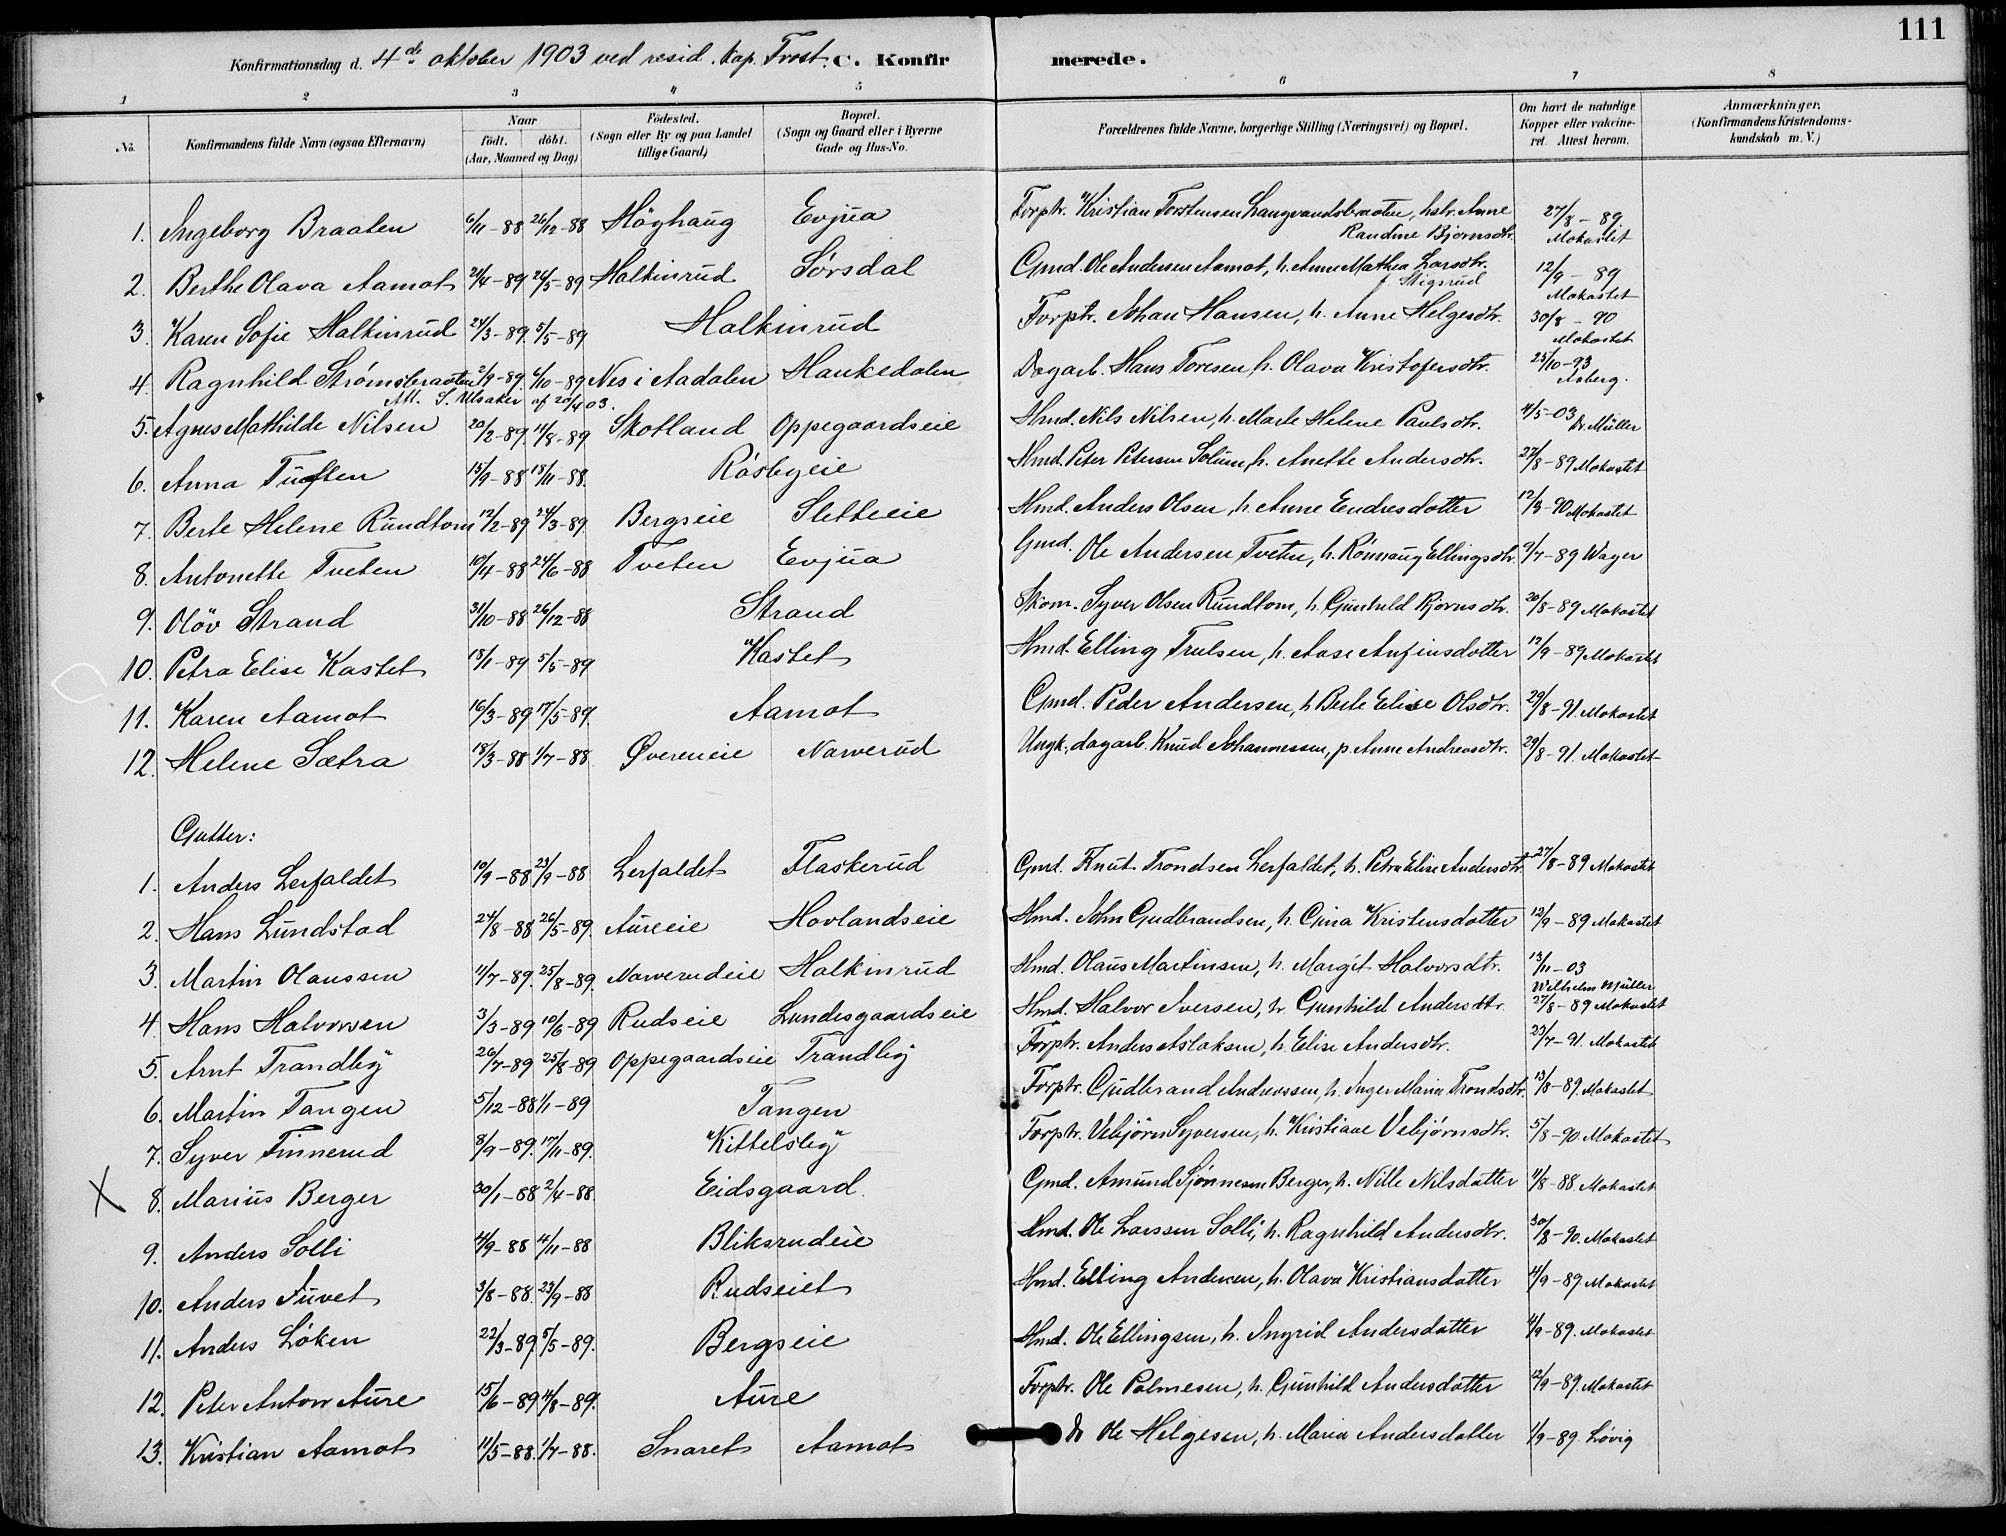 111
Konfirmationsdag d. 4de oktober 1903 ved resid. kap. Frost. C. Konfirmerede.
1 2 3 4 5 6 7 8
No. Konfirmandens fulde Navn (ogsaa Efternavn) Naar födt. döbt. (Aar, Maaned og Dag) Födested. (Sogn eller By og paa Landet tillige Gaard) Bopæl. (Sogn og Gaard eller i Byerne Gade og Hus-No. Forældrenes fulde Navne, borgerlige Stilling (Næringsvei) og Bopæl. Om havt de naturlige Kopper eller vakcineret. Attest herom. Anmærkninger. (Konfirmandens Kristendomskundskab m. V.)
1. Ingeborg Braaten 6/11-88 26/12-88 Höghaug Evjua Forptr. Kristian Torstensen Langvandsbraaten, hstr. Anne Randine Bjørnsdtr. 27/8-89 Mokastet
2. Berthe Olava Aamot 21/4-89 26/5-89 Halkinrud Sørsdal Gmd. Ole Andersen Aamot, h. Anne Mathea Larsdtr. f. Stigsrud 12/9-89 Mokastet
3. Karen Sofie Halkinrud 24/3-89 5/5-89 Halkinrud Forptr. Johan Hansen, h. Anne Helgesdtr. 30/8-90 Mokastet
4. Ragnhild Strømsbraaten 2/9-89. 6/10-89 Nes i Aadalen Haukedalen Dagarb. Hans Toresen, h. Olava Kristofersdtr. 25/10-93 Aaberg.
Att. S. Ulsaker af 20/4 03.
5. Agnes Mathilde Nilsen 20/2-89. 11/8-89 Skotland Oppegaardseie Hmd. Nils Nilsen, h. Marte Helene Paulsdtr. 4/5-03 Dr. Müller
6. Anna Tuften 15/9-88 18/11-88. Røsbyeie Hmd. Peter Petersen Solum, h. Anette Andersdtr. 27/8-89 Mokastet
7. Berte Helene Rundtom 12/2-89 24/3-89. Bergseie Sletteeie Hmd. Anders Olsen, h. Anne Endresdotter 12/3-90 Mokastet
8. Antonette Tveten 10/4-88 24/6-88 Tveten Evjua Gmd. Ole Andersen Tveten, h. Rønnaug Ellingsdtr. 9/7-89 Wager
9. Oløv Strand 31/10-88 26/12-88 Strand Skom. Syver Olsen Rundtom, h. Gunhild Bjørnsdtr. 20/8-89 Mokastet
10. Petra Elise Kastet 18/1-89 5/5-89 Kastet Hmd. Elling Trulsen, h. Aase Anfinsdotter 12/9-89 Mokastet
11. Karen Aamot 16/3-89 17/5-89. Aamot Gmd. Peder Andersen, h. Berte Elise Olsdtr. 29/8-91. Mokastet
12. Helene Sætra 18/3-88 1/7-88 Øvereneie Narverud Ungk., dagarb. Knud Johannessen, p. Anne Andreasdtr. 29/8-91. Mokastet
Gutter:
1. Anders Lerfaldet 10/9-88 23/9-88 Lerfaldet Flaskerud Gmd. Knut Trondsen Lerfaldet, h. Petra Elise Andersdtr. 27/8-89 Mokastet
2. Hans Lundstad 24/8-88 26/5-89. Aureeie Hovlandseie Hmd. John Gudbrandsen, h. Gina Kristensdotter 12/9-89 Mokastet
3. Martin Olaussen 11/7-89. 25/8-89. Narverudeie Halkinrud Hmd. Olaus Martinsen, h. Margit Halvorsdtr. 13/11-03 Wilhelm Müller
4. Hans Halvorsen 3/3-89 10/6-89 Rudseie Lundesgaardseie Hmd. Halvor Iversen, h. Gunhild Andersdtr. 27/8-89 Mokastet
5. Arnt Trandby 26/7-89 25/8-89 Oppegaardseie Trandby Forptr. Anders Aslaksen, h. Elise Andersdtr. 23/7-91. Mokastet
6. Martin Tangen 5/12-88 1/1-89 Tangen Forptr. Gudbrand Andreassen, h. Inger Maria Trondsdtr. 13/8-89. Mokastet
7. Syver Finnerud 8/9-89. 17/11-89. Kittelsby Forptr. Vebjørn Syversen, h. Kristiane Vebjørnsdtr. 5/8-90. Mokastet
X 8. Marius Berger 30/1-88 2/4-88. Eidsgaard. Gmd. Amund Sjønnesen Berger, h. Nille Nilsdatter 11/8-88. Mokastet
9. Anders Solli 4/9-88 4/11-88 Bliksrudeie Hmd. Ole Larssen Solli, h. Ragnhild Andersdtr. 30/8-90. Mokastet
10. Anders Juvet 3/8-88. 23/9-88 Rudseiet Hmd. Elling Andersen, h. Olava Kristiansdatter 4/9-89. Mokastet
11. Anders Løken 22/3-89 5/5-89. Bergseie Hmd. Ole Ellingsen, h. Ingrid Andersdatter 4/9-89. Mokastet
12. Peter Anton Aure 15/6-89 4/8-89. Aure Forptr. Ole Palmesen, h. Gunhild Andersdatter 12/9-89. Mokastet
13. Kristian Aamot 11/5-88. 1/7-88. Snaret Aamot Do Ole Helgesen, h. Maria Andersdatter 1/9-89. Løvig